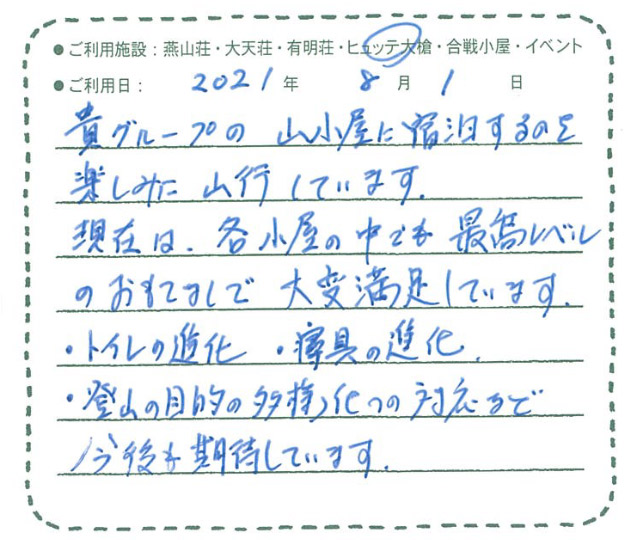 ●ご利用施設：燕山荘・大天荘・有明荘・ヒュッテ大槍・合戦小屋・イベント
●ご利用日： 2021 年 8 月 1 日
貴グループの 山小屋に宿泊するのを
楽しみに 山行しています.
現在は、各小屋の中でも 最高レベル
のおもてなしで 大変満足しています.
・トイレの進化 ・寝具の進化.
・登山の目的の多様化への対応まで
今後も期待しています.